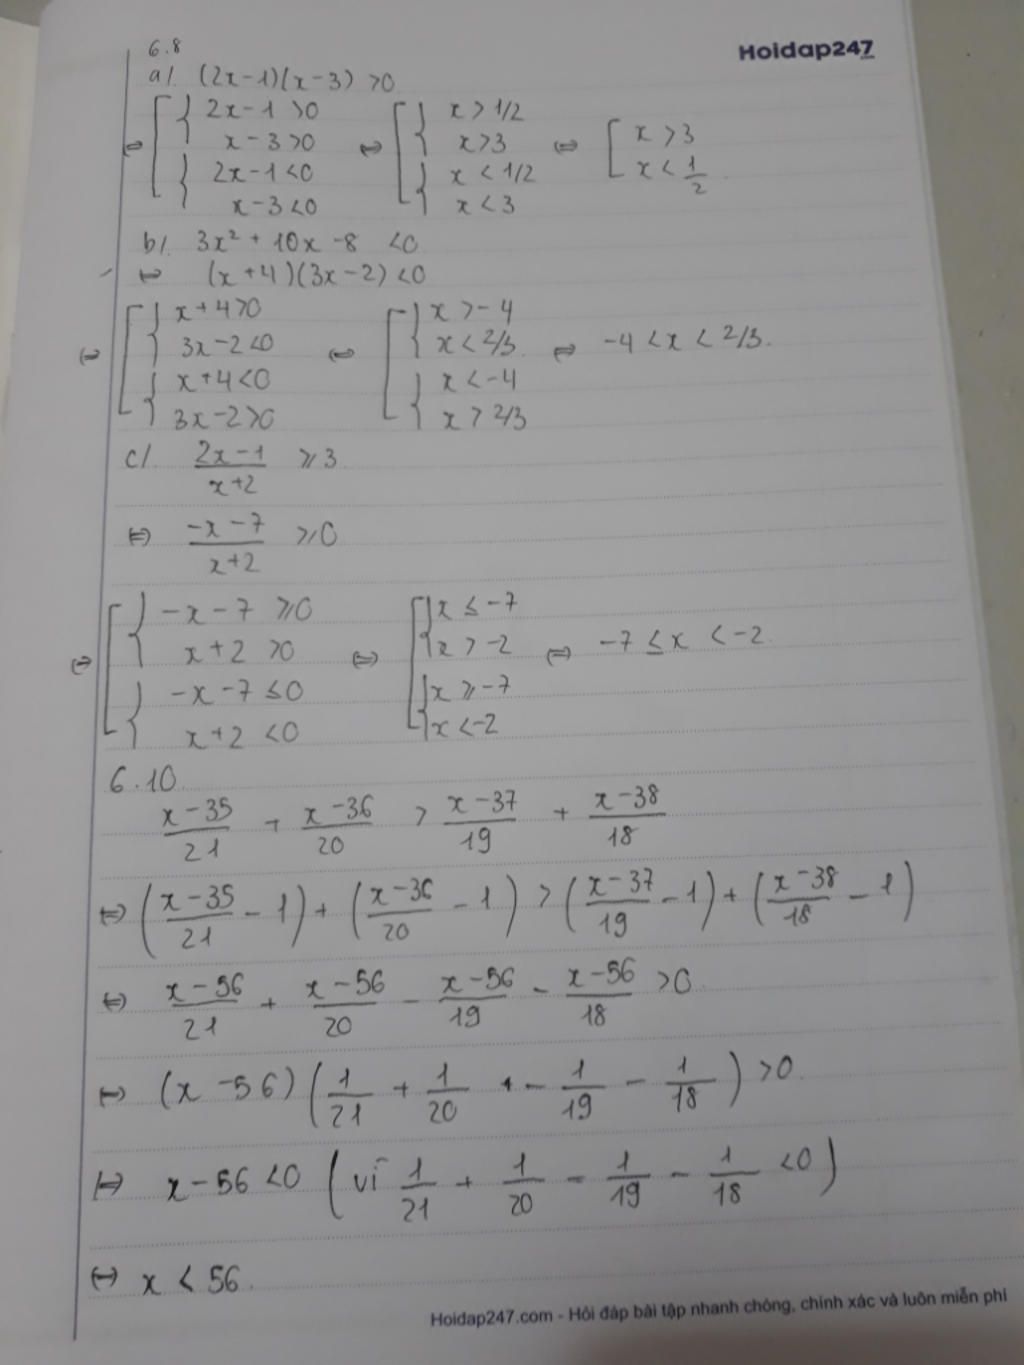 6.8
Hoidap247
a/. (2x-1)(x-3) >0
⇔ [ { 2x-1 >0 x-3 >0 { 2x-1 <0 x-3 <0 ⇔ [ { x > 1/2 x>3 { x < 1/2 x < 3 ⇔ [ x > 3 x < 1/2
b/. 3x² + 10x -8 <0
⇔ (x+4)(3x-2) <0
⇔ [ { x+4>0 3x-2<0 { x+4<0 3x-2>0 ⇔ [ { x > -4 x < 2/3 { x < -4 x > 2/3 ⇔ -4 < x < 2/3.
c/. (2x-1)/(x+2) ≥ 3
⇔ (-x-7)/(x+2) ≥ 0
⇔ [ { -x-7 ≥0 x+2 >0 { -x-7 ≤0 x+2 <0 ⇔ [ { x ≤ -7 x > -2 { x ≥ -7 x < -2 ⇔ -7 ≤ x < -2
6.10
(x-35)/21 + (x-36)/20 > (x-37)/19 + (x-38)/18
⇔ ((x-35)/21 - 1) + ((x-36)/20 - 1) > ((x-37)/19 - 1) + ((x-38)/18 - 1)
⇔ (x-56)/21 + (x-56)/20 - (x-56)/19 - (x-56)/18 >0
⇔ (x-56)(1/21 + 1/20 - 1/19 - 1/18) >0
⇔ x-56 <0 (vì 1/21 + 1/20 - 1/19 - 1/18 <0)
⇔ x < 56.
Hoidap247.com - Hỏi đáp bài tập nhanh chóng, chính xác và luôn miễn phí